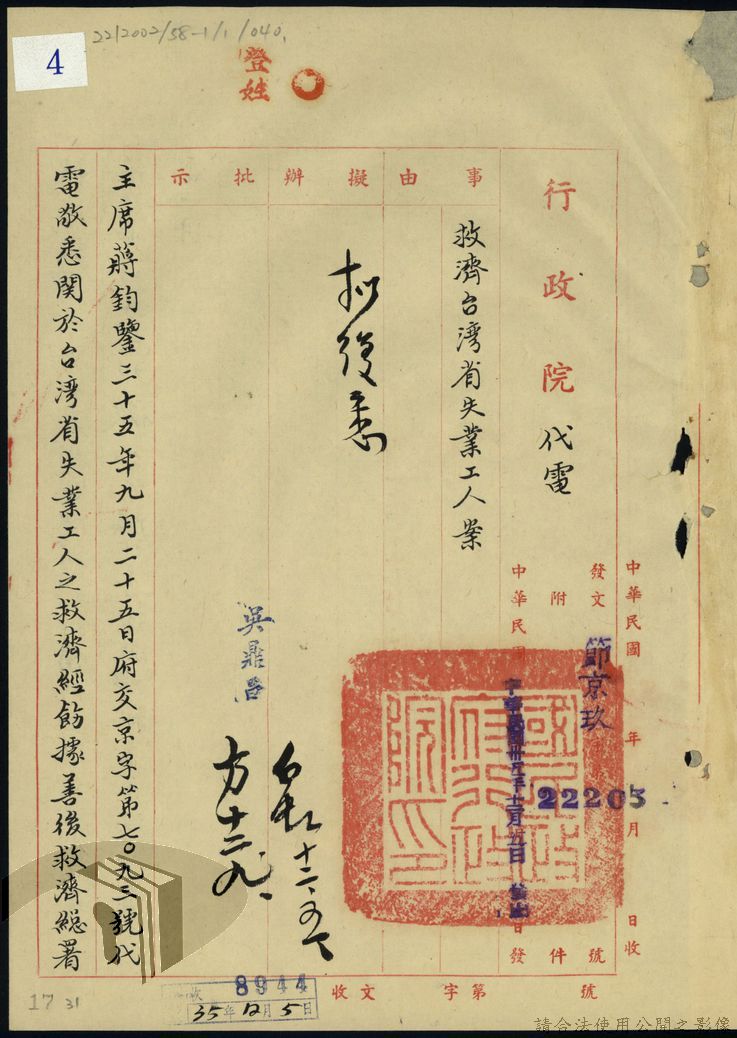 22/2002/58-1/1/040.
4
登姓
中華民國 年 月 日收
發文 號
節京玖
22205
附 件
中華民國
日發
行政院代電
事由
救濟台灣省失業工人案
擬辦
拟復悉
批示
吳鼎昌
十二、
方十二、九、
主席蔣鈞鑒三十五年九月二十五日府交京字第七〇九三號代
電敬悉関於台湾省失業工人之救濟經飭據善後救濟総署
收文 字第 號
8944
35年12月5日
17 31
請合法使用公開之影像